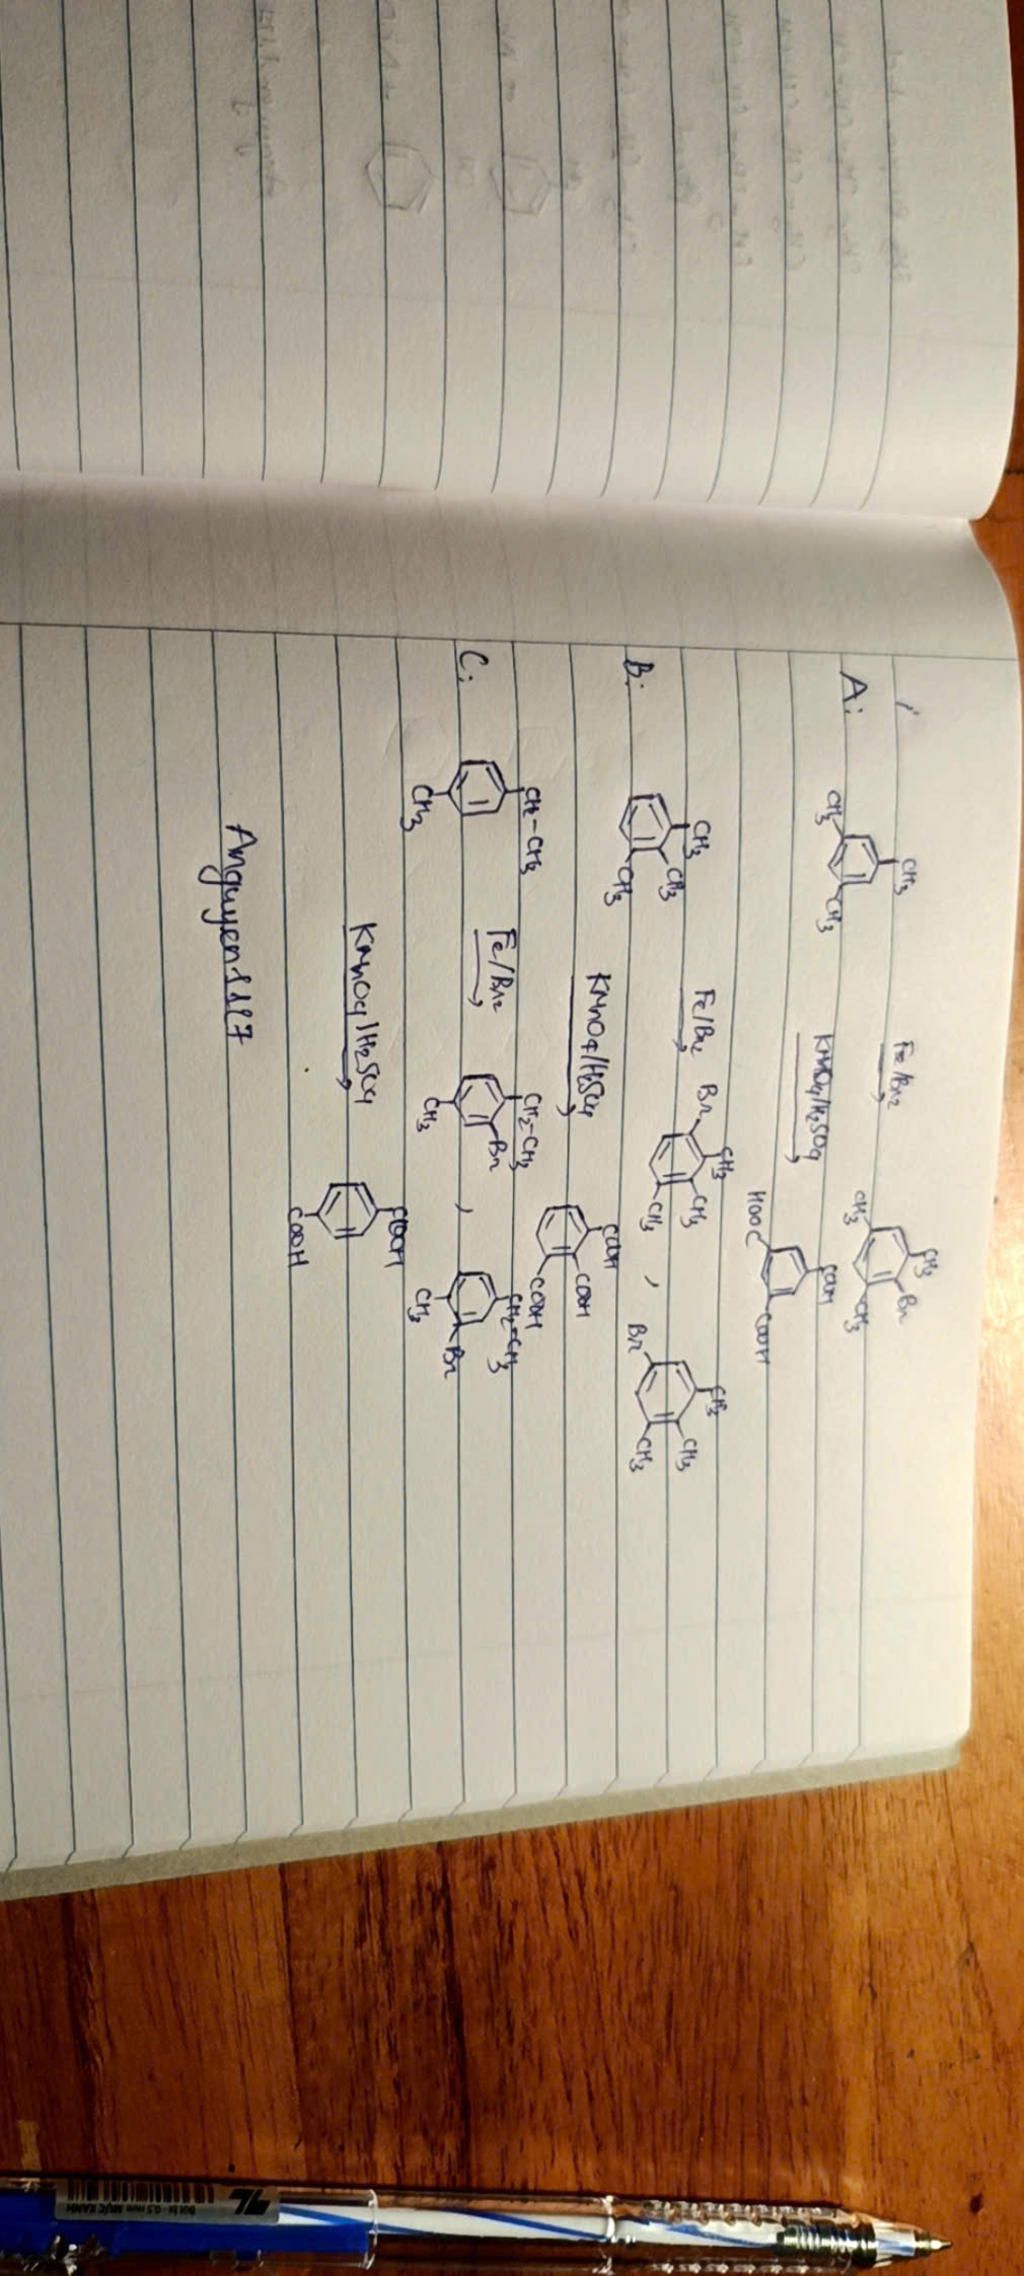 A:
CH3
CH3
CH3
Fe/Br2
CH3
CH3
Br
CH3
KMnO4/H2SO4
HOOC
COOH
COOH
B:
CH3
CH3
CH3
Fe/Br2
Br
CH3
CH3
CH3
,
Br
CH3
CH3
CH3
KMnO4/H2SO4
COOH
COOH
COOH
C:
CH2-CH3
CH3
Fe/Br2
CH2-CH3
Br
CH3
,
CH2-CH3
Br
CH3
KMnO4/H2SO4
COOH
COOH
Anguyen1127
TL
Bút bi - 0.5 mm MỰC XANH